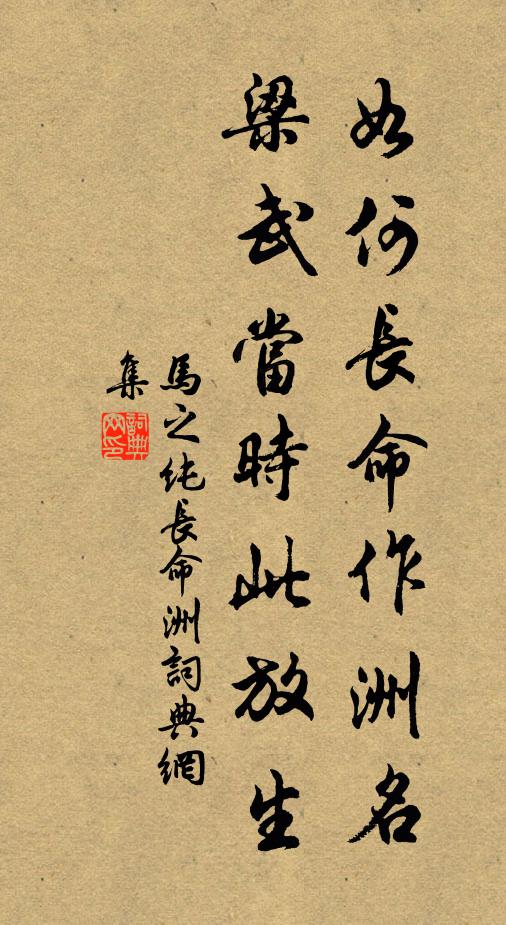 如何長命作洲名
梁武當時此放生
馬之純長命洲詞典網
集
詞典網印